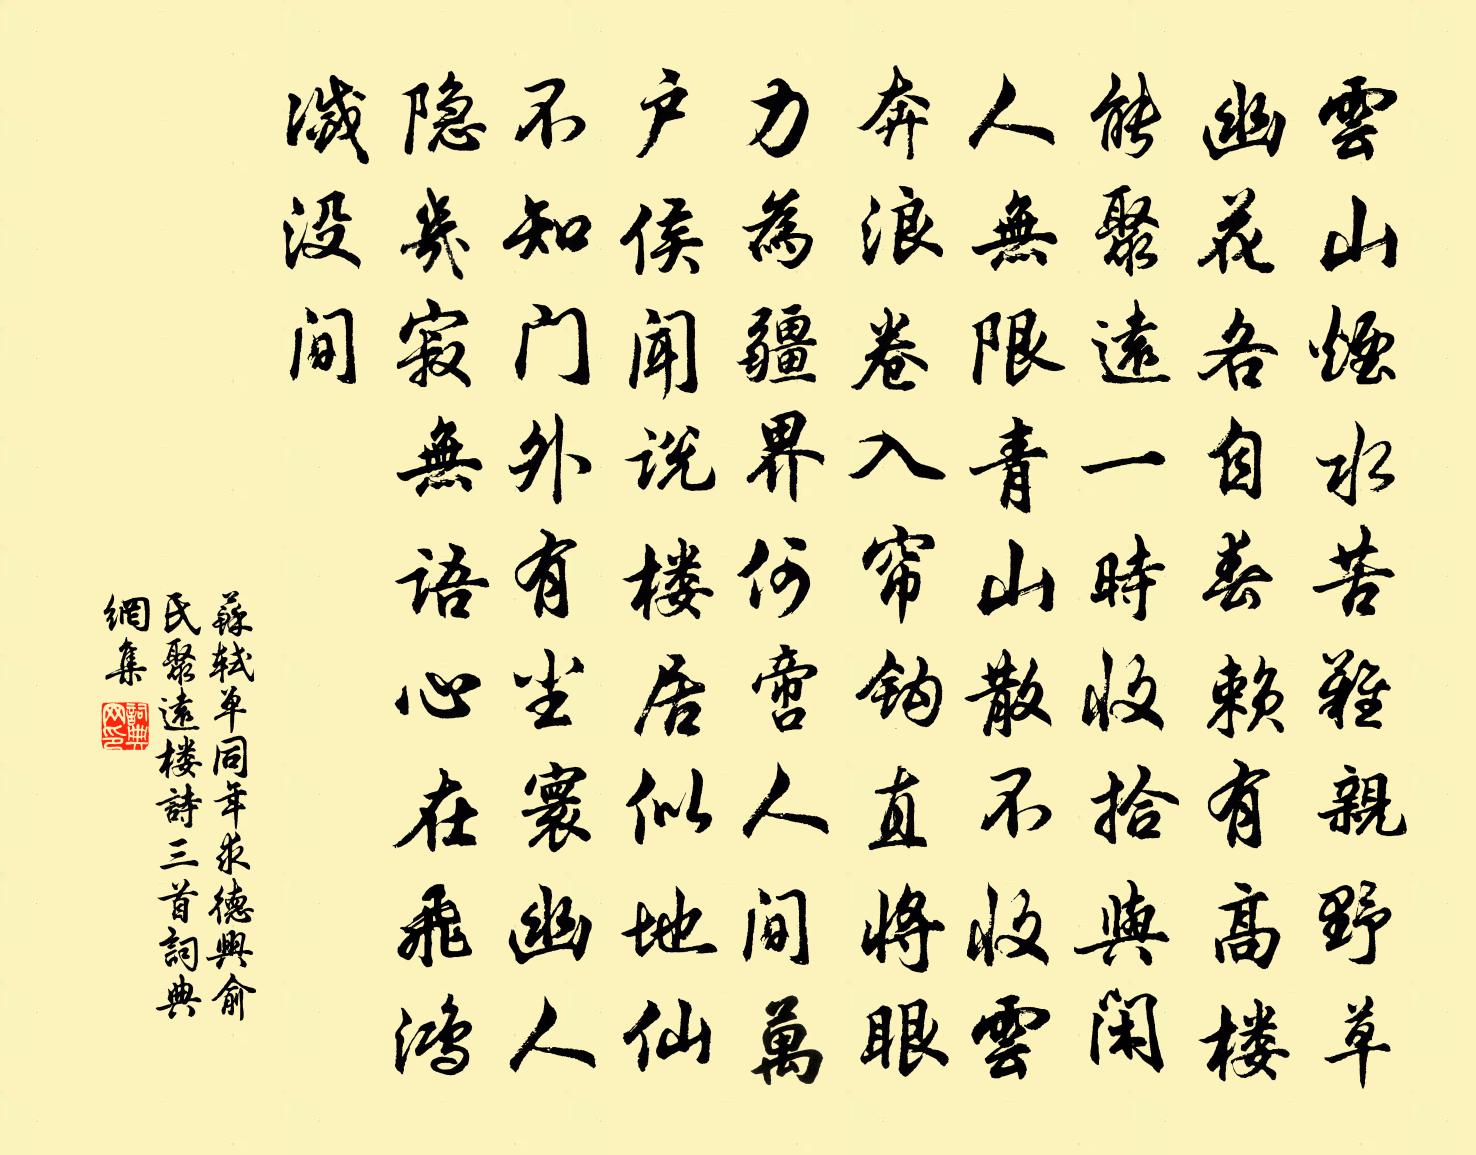 雲山煙水苦難親野草
幽花各自春赖有高楼
能聚遠一時收拾與闲
人無限青山散不收雲
奔浪卷入帘钩直将眼
力為疆界何啻人间萬
户侯闻说楼居似地仙
不知门外有尘寰幽人
隐幾寂無語心在飛鸿
滅没间
蘇轼单同年求德興俞
民聚遠楼詩三首詞典
網集
詞典
网印